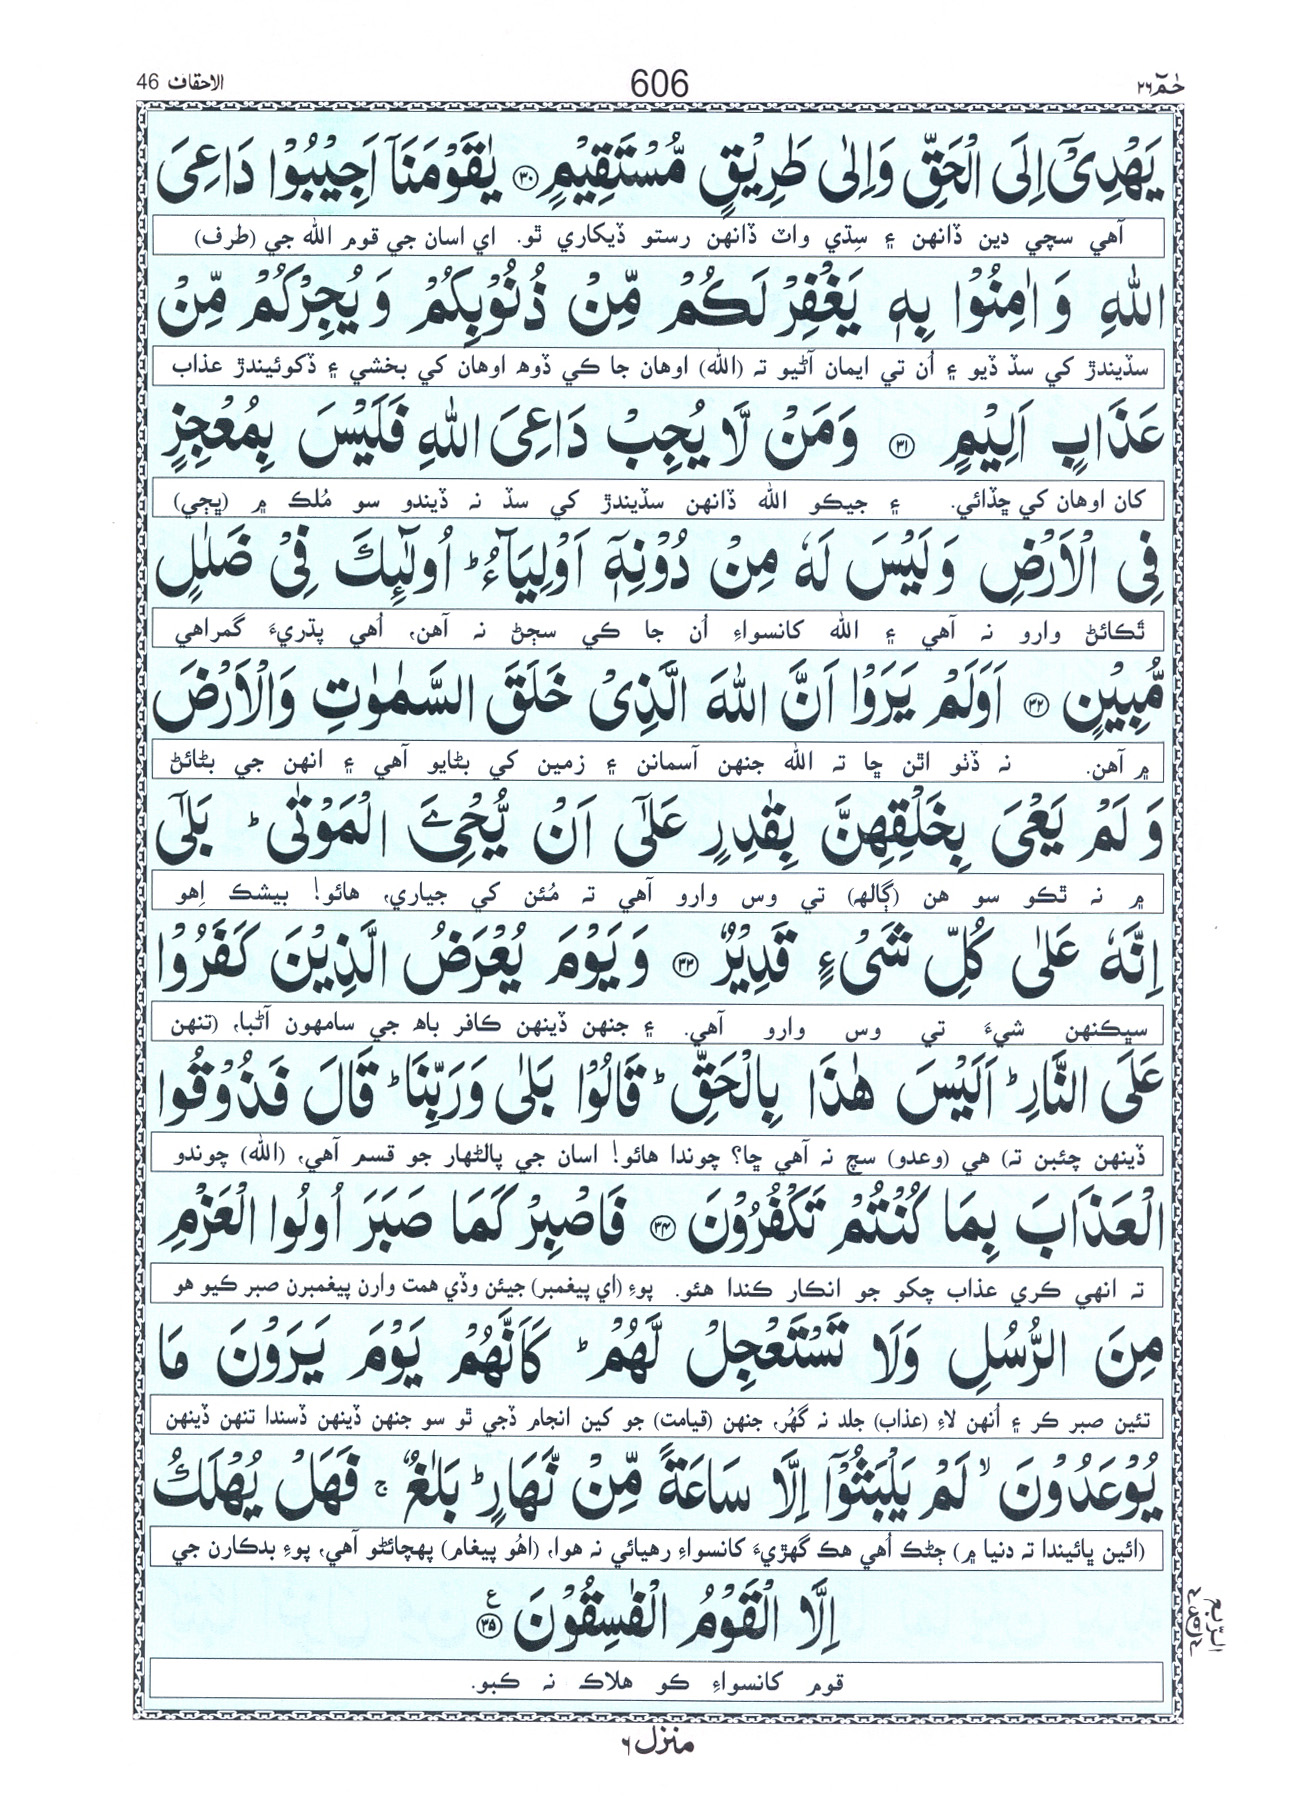 الاحقاف 46
606
حٰمٓ ٢٦
يَهْدِيْٓ اِلَى الْحَقِّ وَاِلٰى طَرِيْقٍ مُّسْتَقِيْمٍ ٣٠ يٰقَوْمَنَآ اَجِيْبُوْا دَاعِيَ
آهي سچي دين ڏانهن ۽ سِڌي واٽ ڏانهن رستو ڏيکاري ٿو. اي اسان جي قوم الله جي (طرف)
اللّٰهِ وَ اٰمِنُوْا بِهٖ يَغْفِرْ لَكُمْ مِّنْ ذُنُوْبِكُمْ وَ يُجِرْكُمْ مِّنْ
سڏيندڙ کي سڏ ڏيو ۽ اُن تي ايمان آڻيو تہ (الله) اوهان جا ڪي ڏوھ اوهان کي بخشي ۽ ڏکوئيندڙ عذاب
عَذَابٍ اَلِيْمٍ ٣١ وَمَنْ لَّا يُجِبْ دَاعِيَ اللّٰهِ فَلَيْسَ بِمُعْجِزٍ
کان اوهان کي ڇڏائي. ۽ جيڪو الله ڏانهن سڏيندڙ کي سڏ نہ ڏيندو سو مُلڪ ۾ (ڀڄي)
فِي الْاَرْضِ وَ لَيْسَ لَهٗ مِنْ دُوْنِهٖٓ اَوْلِيَآءُ ؕ اُولٰٓئِكَ فِيْ ضَلٰلٍ
ٿڪائڻ وارو نہ آهي ۽ الله کانسواءِ اُن جا ڪي سڄڻ نہ آهن، اُهي پڌريءَ گمراهي
مُّبِيْنٍ ٣٢ اَوَلَمْ يَرَوْا اَنَّ اللّٰهَ الَّذِيْ خَلَقَ السَّمٰوٰتِ وَالْاَرْضَ
۾ آهن. نہ ڏٺو اٿن ڇا تہ الله جنهن آسمانن ۽ زمين کي بڻايو آهي ۽ انهن جي بڻائڻ
وَ لَمْ يَعْيَ بِخَلْقِهِنَّ بِقٰدِرٍ عَلٰٓى اَنْ يُّحْيِۦَ الْمَوْتٰى ؕ بَلٰٓى
۾ نہ ٿڪو سو هن (ڳالهہ) تي وس وارو آهي تہ مُئن کي جياري، هائو! بيشڪ اِهو
اِنَّهٗ عَلٰى كُلِّ شَيْءٍ قَدِيْرٌ ٣٣ وَ يَوْمَ يُعْرَضُ الَّذِيْنَ كَفَرُوْا
سڀڪنهن شيءَ تي وس وارو آهي. ۽ جنهن ڏينهن ڪافر باھ جي سامهون آڻبا، (تنهن
عَلَى النَّارِ ؕ اَلَيْسَ هٰذَا بِالْحَقِّ ؕ قَالُوْا بَلٰى وَرَبِّنَا ؕ قَالَ فَذُوْقُوا
ڏينهن چئبن تہ) هي (وعدو) سچ نہ آهي ڇا؟ چوندا هائو! اسان جي پالڻهار جو قسم آهي، (الله) چوندو
الْعَذَابَ بِمَا كُنْتُمْ تَكْفُرُوْنَ ٣٤ فَاصْبِرْ كَمَا صَبَرَ اُولُوا الْعَزْمِ
تہ انهي ڪري عذاب چکو جو انڪار ڪندا هئو. پوءِ (اي پيغمبر) جيئن وڏي همت وارن پيغمبرن صبر ڪيو هو
مِنَ الرُّسُلِ وَلَا تَسْتَعْجِلْ لَّهُمْ ؕ كَاَنَّهُمْ يَوْمَ يَرَوْنَ مَا
تئين صبر ڪر ۽ اُنهن لاءِ (عذاب) جلد نہ گهُر، جنهن (قيامت) جو کين انجام ڏجي ٿو سو جنهن ڏينهن ڏسندا تنهن ڏينهن
يُوْعَدُوْنَ ۙ لَمْ يَلْبَثُوْٓا اِلَّا سَاعَةً مِّنْ نَّهَارٍ ؕ بَلٰغٌ ۚ فَهَلْ يُهْلَكُ
(ائين ڀائيندا تہ دنيا ۾) ڄڻڪ اُهي هڪ گهڙيءَ کانسواءِ رهيائي نہ هوا، (اهُو پيغام) پهچائڻو آهي، پوءِ بدڪارن جي
اِلَّا الْقَوْمُ الْفٰسِقُوْنَ ٣٥ ع
قوم کانسواءِ ڪو هلاڪ نہ ڪبو.
الرّبع
منزل ٦